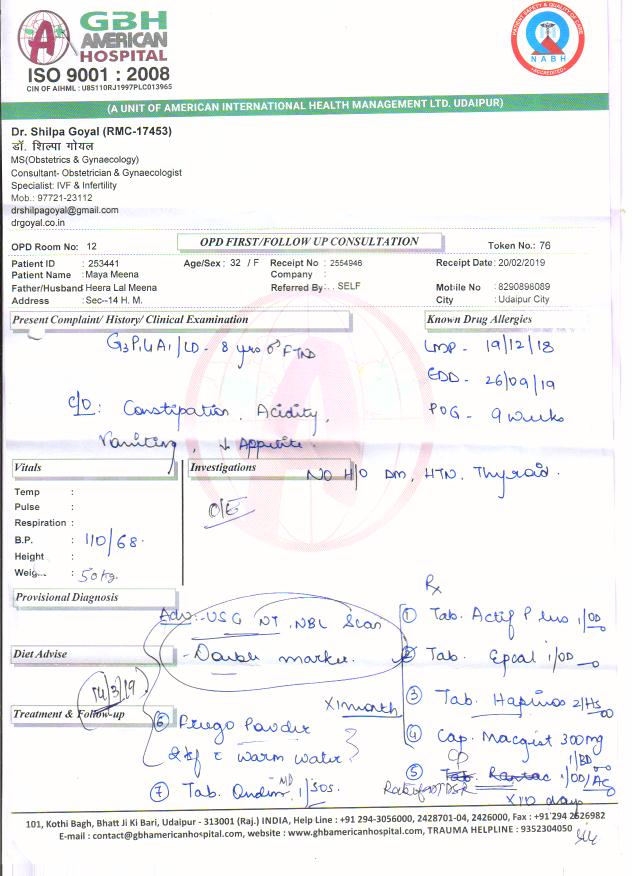 GBH
AMERICAN
HOSPITAL
ISO 9001 : 2008
CIN OF AIHML : U85110RJ1997PLC013965
PATIENT SAFETY & QUALITY OF CARE
NABH
ACCREDITED
(A UNIT OF AMERICAN INTERNATIONAL HEALTH MANAGEMENT LTD. UDAIPUR)
Dr. Shilpa Goyal (RMC-17453)
डॉ. शिल्पा गोयल
MS(Obstetrics & Gynaecology)
Consultant- Obstetrician & Gynaecologist
Specialist: IVF & Infertility
Mob.: 97721-23112
drshilpagoyal@gmail.com
drgoyal.co.in
OPD Room No: 12 OPD FIRST/FOLLOW UP CONSULTATION Token No.: 76
Patient ID : 253441 Age/Sex : 32 / F Receipt No : 2554946 Receipt Date: 20/02/2019
Patient Name : Maya Meena Company :
Father/Husband Heera Lal Meena Referred By: . SELF Mobile No : 8290898089
Address : Sec--14 H. M. City : Udaipur City
Present Complaint/ History/ Clinical Examination Known Drug Allergies
G3P1L1A1/LD - 8 yrs ♂ FTND LMP - 19/12/18
EDD - 26/09/19
C/O: Constipation, Acidity, POG - 9 weeks
Vomiting, ↓ Appetite.
Vitals Investigations NO H/O DM, HTN, Thyroid.
Temp :
Pulse : O/E
Respiration :
B.P. : 110/68.
Height :
Weig... : 50kg.
Provisional Diagnosis Rx
Adv:- USG NT, NBL Scan ① Tab. Actif Plus 1/OD
Diet Advise - Double marker. ② Tab. Epcal 1/OD
14/3/19 ③ Tab. 2/HS
Treatment & Follow-up X1month ④ Cap. Macgist 300mg
1/BD
⑥ Powder
c warm water ⑤ 1/OD/AC
⑦ Tab. MD 1/SOS. DSR
X10 days
101, Kothi Bagh, Bhatt Ji Ki Bari, Udaipur - 313001 (Raj.) INDIA, Help Line : +91 294-3056000, 2428701-04, 2426000, Fax : +91 294 2526982
E-mail : contact@gbhamericanhospital.com, website : www.gbhamericanhospital.com, TRAUMA HELPLINE : 9352304050